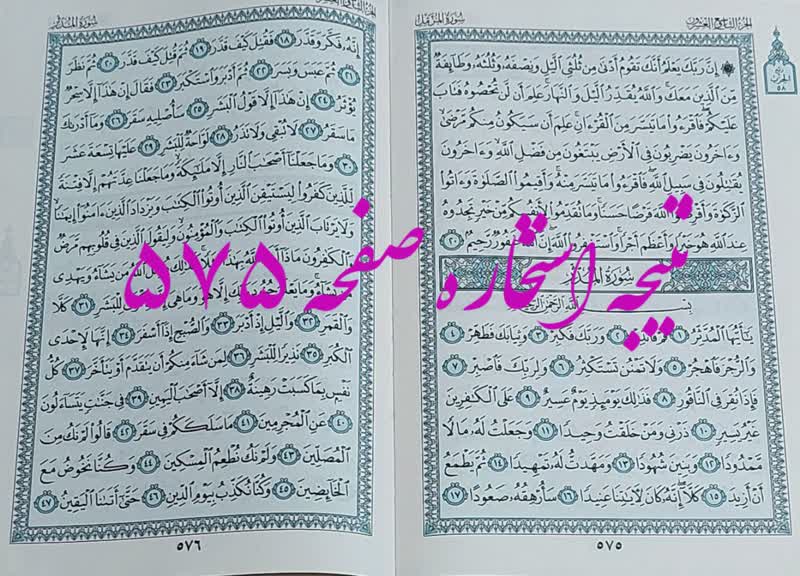 الجزء التاسع والعشرون
سورة المزمل
۞ إِنَّ رَبَّكَ يَعْلَمُ أَنَّكَ تَقُومُ أَدْنَىٰ مِن ثُلُثَيِ ٱلَّيْلِ وَنِصْفَهُۥ وَثُلُثَهُۥ وَطَآئِفَةٌ
مِّنَ ٱلَّذِينَ مَعَكَ ۚ وَٱللَّهُ يُقَدِّرُ ٱلَّيْلَ وَٱلنَّهَارَ ۚ عَلِمَ أَن لَّن تُحْصُوهُ فَتَابَ
عَلَيْكُمْ ۖ فَٱقْرَءُوا۟ مَا تَيَسَّرَ مِنَ ٱلْقُرْءَانِ ۚ عَلِمَ أَن سَيَكُونُ مِنكُم مَّرْضَىٰ ۙ
وَءَاخَرُونَ يَضْرِبُونَ فِى ٱلْأَرْضِ يَبْتَغُونَ مِن فَضْلِ ٱللَّهِ ۙ وَءَاخَرُونَ
يُقَٰتِلُونَ فِى سَبِيلِ ٱللَّهِ ۖ فَٱقْرَءُوا۟ مَا تَيَسَّرَ مِنْهُ ۚ وَأَقِيمُوا۟ ٱلصَّلَوٰةَ وَءَاتُوا۟
ٱلزَّكَوٰةَ وَأَقْرِضُوا۟ ٱللَّهَ قَرْضًا حَسَنًا ۚ وَمَا تُقَدِّمُوا۟ لِأَنفُسِكُم مِّنْ خَيْرٍ تَجِدُوهُ
عِندَ ٱللَّهِ هُوَ خَيْرًا وَأَعْظَمَ أَجْرًا ۚ وَٱسْتَغْفِرُوا۟ ٱللَّهَ ۖ إِنَّ ٱللَّهَ غَفُورٌ رَّحِيمٌۢ ٢٠
سُورَةُ المُدَّثِّرِ
بِسْمِ ٱللَّهِ ٱلرَّحْمَٰنِ ٱلرَّحِيمِ
يَٰٓأَيُّهَا ٱلْمُدَّثِّرُ ١ قُمْ فَأَنذِرْ ٢ وَرَبَّكَ فَكَبِّرْ ٣ وَثِيَابَكَ فَطَهِّرْ ٤
وَٱلرُّجْزَ فَٱهْجُرْ ٥ وَلَا تَمْنُن تَسْتَكْثِرُ ٦ وَلِرَبِّكَ فَٱصْبِرْ ٧
فَإِذَا نُقِرَ فِى ٱلنَّاقُورِ ٨ فَذَٰلِكَ يَوْمَئِذٍ يَوْمٌ عَسِيرٌ ٩ عَلَى ٱلْكَٰفِرِينَ
غَيْرُ يَسِيرٍ ١٠ ذَرْنِى وَمَنْ خَلَقْتُ وَحِيدًا ١١ وَجَعَلْتُ لَهُۥ مَالًا
مَّمْدُودًا ١٢ وَبَنِينَ شُهُودًا ١٣ وَمَهَّدتُّ لَهُۥ تَمْهِيدًا ١٤ ثُمَّ يَطْمَعُ
أَنْ أَزِيدَ ١٥ كَلَّآ ۖ إِنَّهُۥ كَانَ لِءَايَٰتِنَا عَنِيدًا ١٦ سَأُرْهِقُهُۥ صَعُودًا ١٧
٥٧٥
سورة المدثر
إِنَّهُۥ فَكَّرَ وَقَدَّرَ ١٨ فَقُتِلَ كَيْفَ قَدَّرَ ١٩ ثُمَّ قُتِلَ كَيْفَ قَدَّرَ ٢٠ ثُمَّ نَظَرَ
٢١ ثُمَّ عَبَسَ وَبَسَرَ ٢٢ ثُمَّ أَدْبَرَ وَٱسْتَكْبَرَ ٢٣ فَقَالَ إِنْ هَٰذَآ إِلَّا سِحْرٌ
يُؤْثَرُ ٢٤ إِنْ هَٰذَآ إِلَّا قَوْلُ ٱلْبَشَرِ ٢٥ سَأُصْلِيهِ سَقَرَ ٢٦ وَمَآ أَدْرَىٰكَ
مَا سَقَرُ ٢٧ لَا تُبْقِى وَلَا تَذَرُ ٢٨ لَوَّاحَةٌ لِّلْبَشَرِ ٢٩ عَلَيْهَا تِسْعَةَ عَشَرَ
٣٠ وَمَا جَعَلْنَآ أَصْحَٰبَ ٱلنَّارِ إِلَّا مَلَٰٓئِكَةً ۙ وَمَا جَعَلْنَا عِدَّتَهُمْ إِلَّا فِتْنَةً
لِّلَّذِينَ كَفَرُوا۟ لِيَسْتَيْقِنَ ٱلَّذِينَ أُوتُوا۟ ٱلْكِتَٰبَ وَيَزْدَادَ ٱلَّذِينَ ءَامَنُوٓا۟ إِيمَٰنًا ۙ
وَلَا يَرْتَابَ ٱلَّذِينَ أُوتُوا۟ ٱلْكِتَٰبَ وَٱلْمُؤْمِنُونَ ۙ وَلِيَقُولَ ٱلَّذِينَ فِى قُلُوبِهِم مَّرَضٌ
وَٱلْكَٰفِرُونَ مَاذَآ أَرَادَ ٱللَّهُ بِهَٰذَا مَثَلًا ۚ كَذَٰلِكَ يُضِلُّ ٱللَّهُ مَن يَشَآءُ وَيَهْدِى
مَن يَشَآءُ ۚ وَمَا يَعْلَمُ جُنُودَ رَبِّكَ إِلَّا هُوَ ۚ وَمَا هِىَ إِلَّا ذِكْرَىٰ لِلْبَشَرِ ٣١ كَلَّا
وَٱلْقَمَرِ ٣٢ وَٱلَّيْلِ إِذْ أَدْبَرَ ٣٣ وَٱلصُّبْحِ إِذَآ أَسْفَرَ ٣٤ إِنَّهَا لَإِحْدَى
ٱلْكُبَرِ ٣٥ نَذِيرًا لِّلْبَشَرِ ٣٦ لِمَن شَآءَ مِنكُمْ أَن يَتَقَدَّمَ أَوْ يَتَأَخَّرَ ٣٧ كُلُّ
نَفْسٍۭ بِمَا كَسَبَتْ رَهِينَةٌ ٣٨ إِلَّآ أَصْحَٰبَ ٱلْيَمِينِ ٣٩ فِى جَنَّٰتٍ يَتَسَآءَلُونَ
٤٠ عَنِ ٱلْمُجْرِمِينَ ٤١ مَا سَلَكَكُمْ فِى سَقَرَ ٤٢ قَالُوا۟ لَمْ نَكُ مِنَ
ٱلْمُصَلِّينَ ٤٣ وَلَمْ نَكُ نُطْعِمُ ٱلْمِسْكِينَ ٤٤ وَكُنَّا نَخُوضُ مَعَ
ٱلْخَآئِضِينَ ٤٥ وَكُنَّا نُكَذِّبُ بِيَوْمِ ٱلدِّينِ ٤٦ حَتَّىٰٓ أَتَىٰنَا ٱلْيَقِينُ ٤٧
٥٧٦
نتیجه استخاره صفحه ۵۷۵